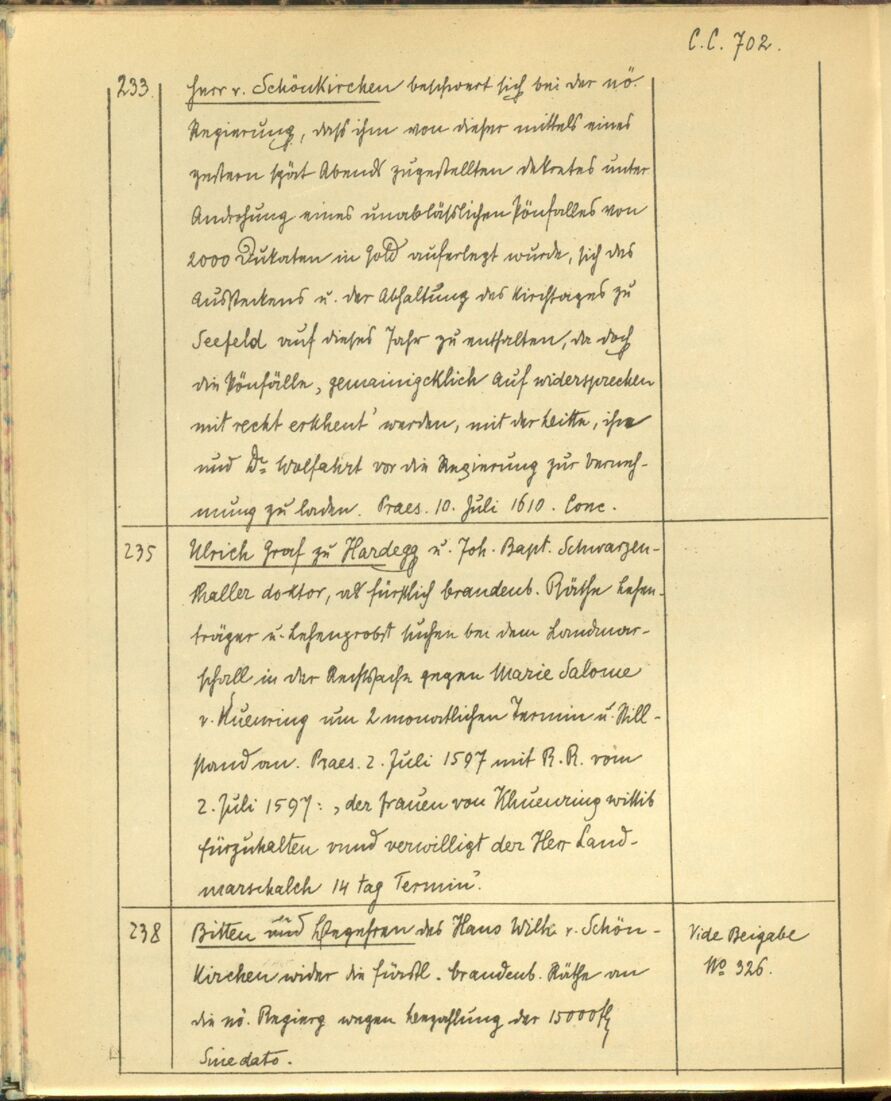 C.C. 702.
233. Herr v. Schönkirchen beschwert sich bei der nö.
Regierung, dass ihm von dieser mittels eines
gestern spät Abends zugestellten Dekretes unter
Androhung eines unablässlichen Pönfalles von
2000 Dukaten in Gold auferlegt wurde, sich des
Aussteckens u. der Abhaltung des Kirchtages zu
Seefeld auf dieses Jahr zu enthalten, da doch
die Pönfälle „gemainigcklich auf widersprechen
mit recht erkhent" werden, mit der Bitte, ihn
und Dr. Wolfahrt vor die Regierung zur Verneh-
mung zu laden. Praes. 10. Juli 1610. Conc.
235 Ulrich Graf zu Hardegg u. Joh. Bapt. Schwarzen-
thaller doktor, als fürstlich brandenb. Räthe Lehen-
träger u. Lehenprobst suchen bei dem Landmar-
schall in der Rechtsache gegen Marie Salome
v. Kuenring um 2 monatlichen Termin u. Still-
stand an. Praes. 2. Juli 1597 mit R. R. vom
2. Juli 1597: „der frauen von Khuenring wittib
fürzuhalten vnnd verwilligt der Herr Land-
marschalch 14 tag Termin".
238 Bitten und Begehren des Hans Wilh. v. Schön-
kirchen wider die fürstl. brandenb. Räthe an
die nö. Regierg wegen Bezahlung der 15000 fl
Sine dato.
Vide Beigabe
No 326.